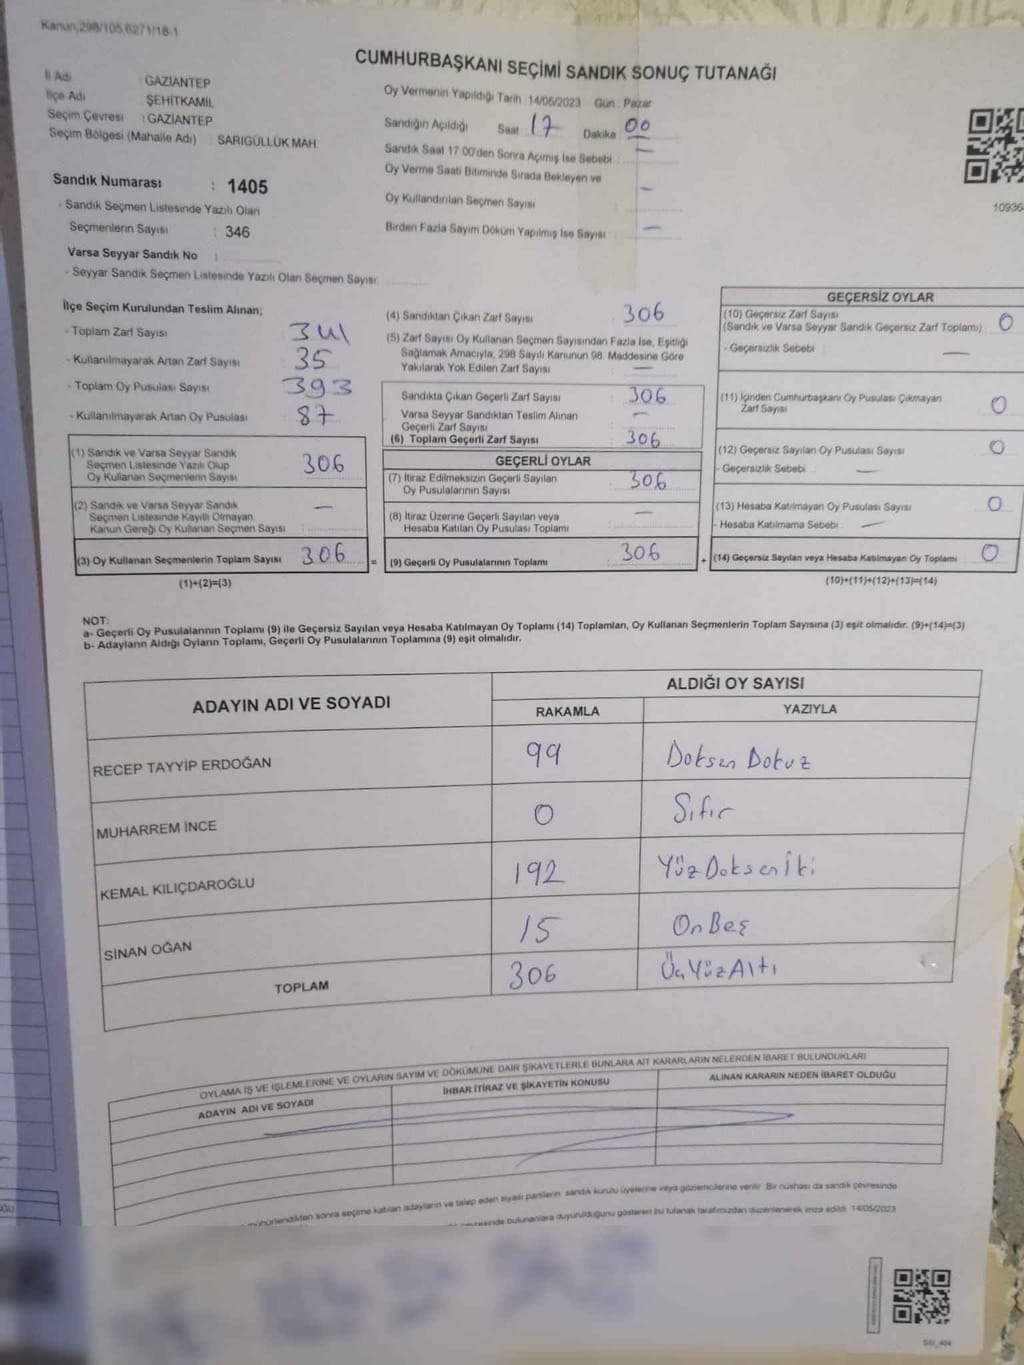 Kanun,298/105,6271/18-1
CUMHURBAŞKANI SEÇİMİ SANDIK SONUÇ TUTANAĞI
İl Adı GAZİANTEP
İlçe Adı ŞEHİTKAMİL
Seçim Çevresi : GAZİANTEP
Seçim Bölgesi (Mahalle Adı) SARIGÜLLÜK MAH.
Sandık Numarası : 1405
- Sandık Seçmen Listesinde Yazılı Olan
Seçmenlerin Sayısı : 346
Varsa Seyyar Sandık No :
- Seyyar Sandık Seçmen Listesinde Yazılı Olan Seçmen Sayısı:
Oy Vermenin Yapıldığı Tarih 14/05/2023 Gün : Pazar
Sandığın Açıldığı Saat 17 Dakika 00
Sandık Saat 17:00'den Sonra Açımış İse Sebebi : —
Oy Verme Saati Bitiminde Sırada Bekleyen ve
Oy Kullandırılan Seçmen Sayısı —
Birden Fazla Sayım Döküm Yapılmış İse Sayısı —
10936
İlçe Seçim Kurulundan Teslim Alınan;
- Toplam Zarf Sayısı 341
- Kullanılmayarak Artan Zarf Sayısı 35
- Toplam Oy Pusulası Sayısı 393
- Kullanılmayarak Artan Oy Pusulası 87
(1) Sandık ve Varsa Seyyar Sandık
Seçmen Listesinde Yazılı Olup
Oy Kullanan Seçmenlerin Sayısı 306
(2) Sandık ve Varsa Seyyar Sandık
Seçmen Listesinde Kayıtlı Olmayan
Kanun Gereği Oy Kullanan Seçmen Sayısı —
(3) Oy Kullanan Seçmenlerin Toplam Sayısı 306 =
(1)+(2)=(3)
(4) Sandıktan Çıkan Zarf Sayısı 306
(5) Zarf Sayısı Oy Kullanan Seçmen Sayısından Fazla İse, Eşitliği
Sağlamak Amacıyla, 298 Sayılı Kanunun 98. Maddesine Göre
Yakılarak Yok Edilen Zarf Sayısı —
Sandıkta Çıkan Geçerli Zarf Sayısı 306
Varsa Seyyar Sandıktan Teslim Alınan
Geçerli Zarf Sayısı —
(6) Toplam Geçerli Zarf Sayısı 306
GEÇERLİ OYLAR
(7) İtiraz Edilmeksizin Geçerli Sayılan
Oy Pusulalarının Sayısı 306
(8) İtiraz Üzerine Geçerli Sayılan veya
Hesaba Katılan Oy Pusulası Toplamı —
(9) Geçerli Oy Pusulalarının Toplamı 306 +
GEÇERSİZ OYLAR
(10) Geçersiz Zarf Sayısı
(Sandık ve Varsa Seyyar Sandık Geçersiz Zarf Toplamı) 0
- Geçersizlik Sebebi : —
(11) İçinden Cumhurbaşkanı Oy Pusulası Çıkmayan
Zarf Sayısı 0
(12) Geçersiz Sayılan Oy Pusulası Sayısı 0
- Geçersizlik Sebebi —
(13) Hesaba Katılmayan Oy Pusulası Sayısı 0
- Hesaba Katılmama Sebebi : —
(14) Geçersiz Sayılan veya Hesaba Katılmayan Oy Toplamı 0
(10)+(11)+(12)+(13)=(14)
NOT:
a- Geçerli Oy Pusulalarının Toplamı (9) ile Geçersiz Sayılan veya Hesaba Katılmayan Oy Toplamı (14) Toplamları, Oy Kullanan Seçmenlerin Toplam Sayısına (3) eşit olmalıdır. (9)+(14)=(3)
b- Adayların Aldığı Oyların Toplamı, Geçerli Oy Pusulalarının Toplamına (9) eşit olmalıdır.
ADAYIN ADI VE SOYADI ALDIĞI OY SAYISI
RAKAMLA YAZIYLA
RECEP TAYYİP ERDOĞAN 99 Doksan Dokuz
MUHARREM İNCE 0 Sıfır
KEMAL KILIÇDAROĞLU 192 Yüz Doksan İki
SİNAN OĞAN 15 On Beş
TOPLAM 306 Üç Yüz Altı
OYLAMA İŞ VE İŞLEMLERİNE VE OYLARIN SAYIM VE DÖKÜMÜNE DAİR ŞİKAYETLERLE BUNLARA AİT KARARLARIN NELERDEN İBARET BULUNDUKLARI
ADAYIN ADI VE SOYADI İHBAR İTİRAZ VE ŞİKAYETİN KONUSU ALINAN KARARIN NEDEN İBARET OLDUĞU
mühürlendikten sonra seçime katılan adayların ve talep eden siyasi partilerin sandık kurulu üyelerine veya gözlemcilerine verilir. Bir nüshası da sandık çevresinde
bulunanlara duyurulduğunu gösteren bu tutanak tarafımızdan düzenlenerek imza edildi. 14/05/2023